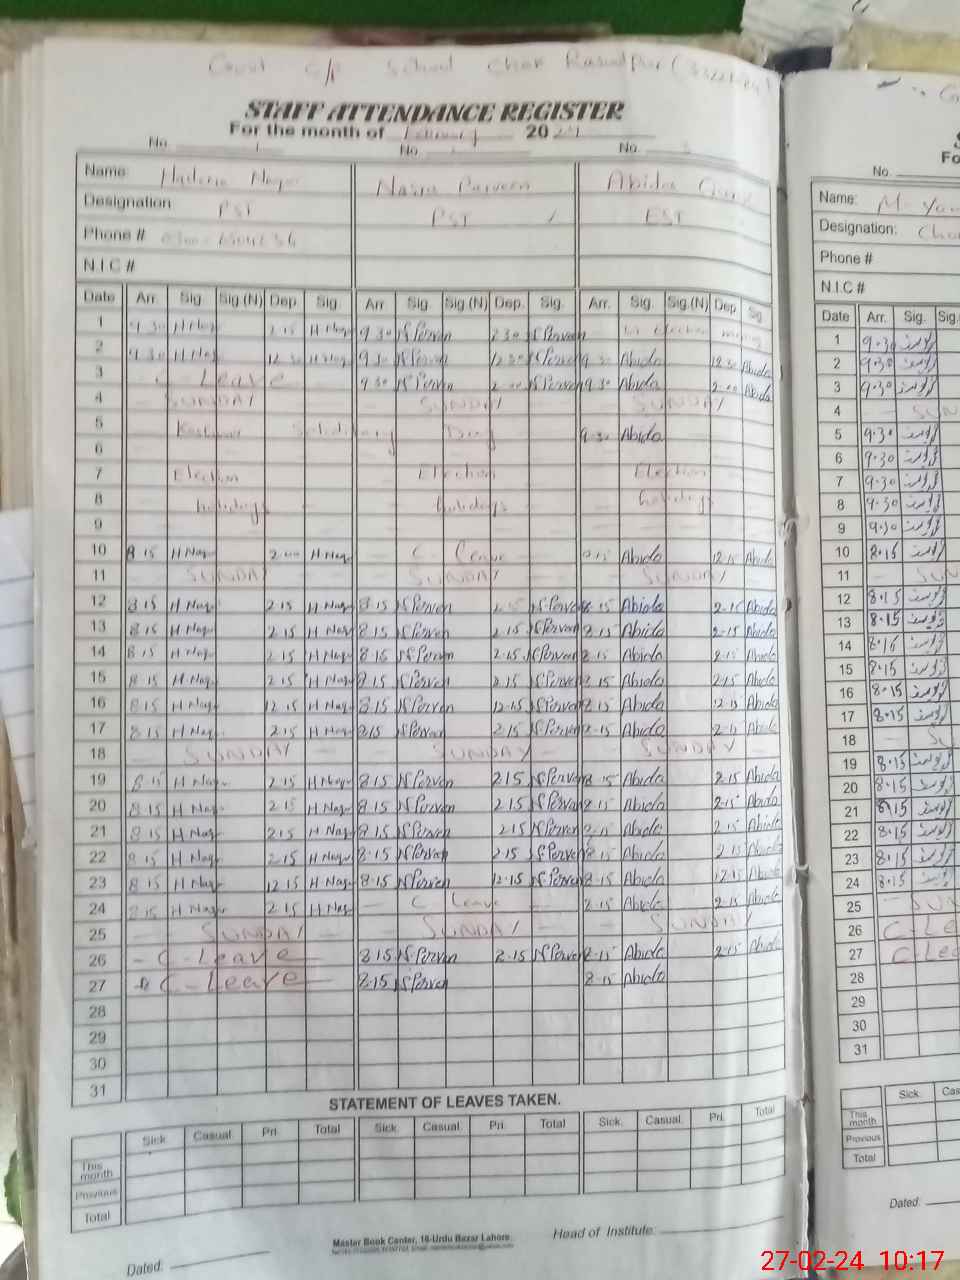 Govt G/P School Chak Rasulpur
STAFF ATTENDANCE REGISTER
For the month of February 2024
No. 1 No. No. 3
Name: Nagar Nasra Parveen Abida
Designation PST PST EST
Phone #
N.I.C #
Date Arr. Sig. Sig (N) Dep Sig. Arr Sig. Sig.(N) Dep. Sig. Arr. Sig. Sig.(N) Dep Sig
1 9 30 H Naz 2 15 H Naz 9 30 N Perven 2 30 N Perven Election
2 9 30 H Naz 12 30 H Naz 9 30 N Perven 12 30 N Perven 9 30 Abida 12 30 Abida
3 C - Leave 9 30 N Perven 2 00 N Perven 9 30 Abida 2 00 Abida
4 SUNDAY SUNDAY SUNDAY
5 Kashmir Solidarity Day 9 30 Abida
6
7 Election Election Election
8 holidays holidays holidays
9
10 8 15 H Naz 2 00 H Naz C - Leave Abida 12 15 Abida
11 SUNDAY SUNDAY SUNDAY
12 8 15 H Naz 2 15 H Naz 8 15 N Perven 2 15 N Perven 8 15 Abida 2 15 Abida
13 8 15 H Naz 2 15 H Naz 8 15 N Perven 2 15 N Perven 8 15 Abida 2 15 Abida
14 8 15 H Naz 2 15 H Naz 8 15 N Perven 2 15 N Perven 8 15 Abida 2 15 Abida
15 8 15 H Naz 2 15 H Naz 8 15 N Perven 2 15 N Perven 8 15 Abida 2 15 Abida
16 8 15 H Naz 12 15 H Naz 8 15 N Perven 12 15 N Perven 8 15 Abida 12 15 Abida
17 8 15 H Naz 2 15 H Naz 8 15 N Perven 2 15 N Perven 8 15 Abida 2 15 Abida
18 SUNDAY SUNDAY SUNDAY
19 8 15 H Naz 2 15 H Naz 8 15 N Perven 2 15 N Perven 8 15 Abida 2 15 Abida
20 8 15 H Naz 2 15 H Naz 8 15 N Perven 2 15 N Perven 8 15 Abida 2 15 Abida
21 8 15 H Naz 2 15 H Naz 8 15 N Perven 2 15 N Perven 8 15 Abida 2 15 Abida
22 8 15 H Naz 2 15 H Naz 8 15 N Perven 2 15 N Perven 8 15 Abida 2 15 Abida
23 8 15 H Naz 12 15 H Naz 8 15 N Perven 12 15 N Perven 8 15 Abida 12 15 Abida
24 8 15 H Naz 2 15 H Naz C Leave 8 15 Abida 2 15 Abida
25 SUNDAY SUNDAY SUNDAY
26 - C - Leave 8 15 N Perven 2 15 N Perven 8 15 Abida 2 15 Abida
27 C - Leave 8 15 N Perven 8 15 Abida
28
29
30
31
STATEMENT OF LEAVES TAKEN.
Sick. Casual. Pri. Total Sick. Casual. Pri. Total Sick. Casual. Pri. Total
This month
Previous
Total
Master Book Center, 16-Urdu Bazar Lahore.
Dated: Head of Institute:
No.
Name: M.
Designation:
Phone #
N.I.C #
Date Arr. Sig. Sig.
1 9.30
2 9.30
3 9.30
4 SUN
5 9.30
6 9.30
7 9.30
8 9.30
9 9.30
10 8.15
11 SU
12 8.15
13 8.15
14 8.15
15 8.15
16 8.15
17 8.15
18 SU
19 8.15
20 8.15
21 8.15
22 8.15
23 8.15
24 8.15
25 SUN
26 C-Le
27 C-Lea
28
29
30
31
Sick. Cas
This month
Previous
Total
Dated:
27-02-24 10:17